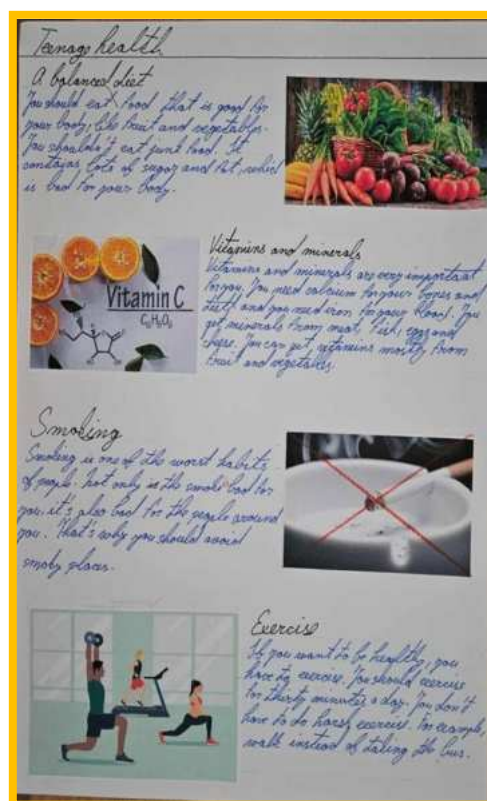 Teenage health
A balanced diet
You should eat food that is good for
your body, like fruit and vegetables.
You shouldn't eat junk food. It
contains lots of sugar and fat, which
is bad for your body.
Vitamins and minerals
Vitamins and minerals are very important
for you. You need calcium for your bones and
teeth and you need iron for your blood. You
get minerals from meat, fish, eggs and
cheese. You can get vitamins mostly from
fruit and vegetables.
Vitamin C
C₆H₈O₆
Smoking
Smoking is one of the worst habits
of people. Not only is the smoke bad for
you, it's also bad for the people around
you. That's why you should avoid
smoky places.
Exercise
If you want to be healthy, you
have to exercise. You should exercise
for thirty minutes a day. You don't
have to do harsh exercise. For example,
walk instead of taking the bus.